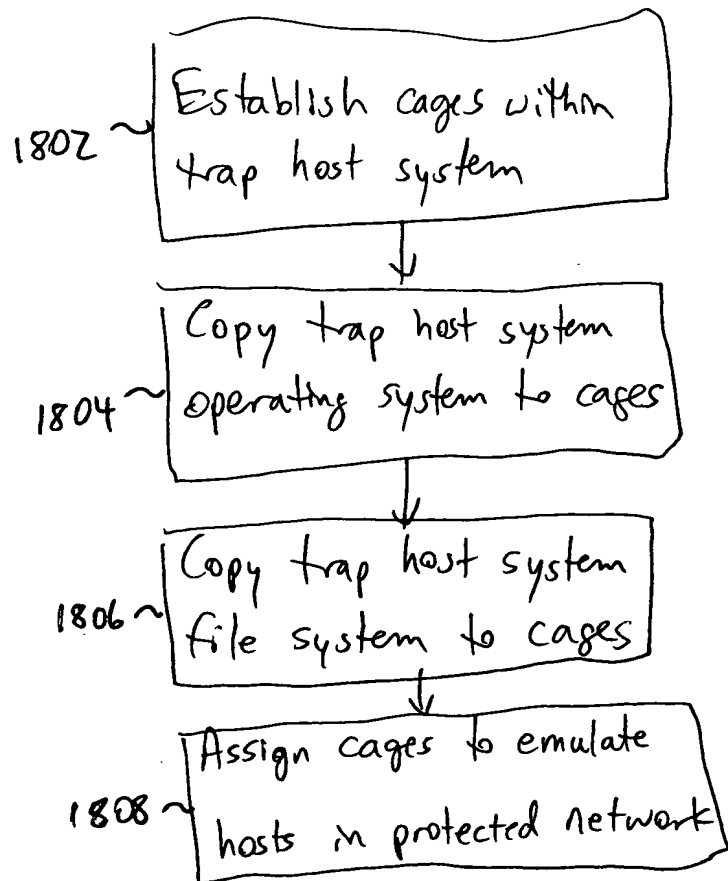 Establish cages within
1802 ~
trap host system
Copy trap host system
1804 ~
operating system to cages
Copy trap host system
1806 ~
file system to cages
Assign cages to emulate
1808 ~
hosts in protected network